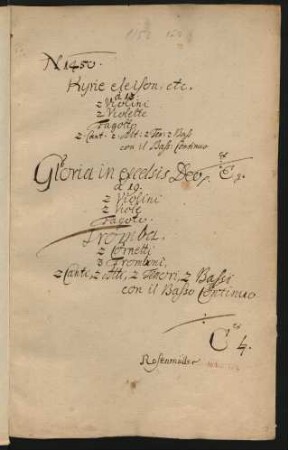 N 1450.
Kyrie eleison. etc.
a 13.
2 Violini
2 Violette
Fagotto
2 Cant: 2 Alt: 2 Ten: 2 Bass
con il Bass: Continuo
Gloria in excelsis Deo,
a 19.
2 Violini
2 Viole
Fagoto.
Tromba.
2 Cornetti
3 Tromboni,
2 Canti, 2 Alti, 2 Tenori, 2 Bassi
con il Basso Continuo
C 4.
Rosenmüller